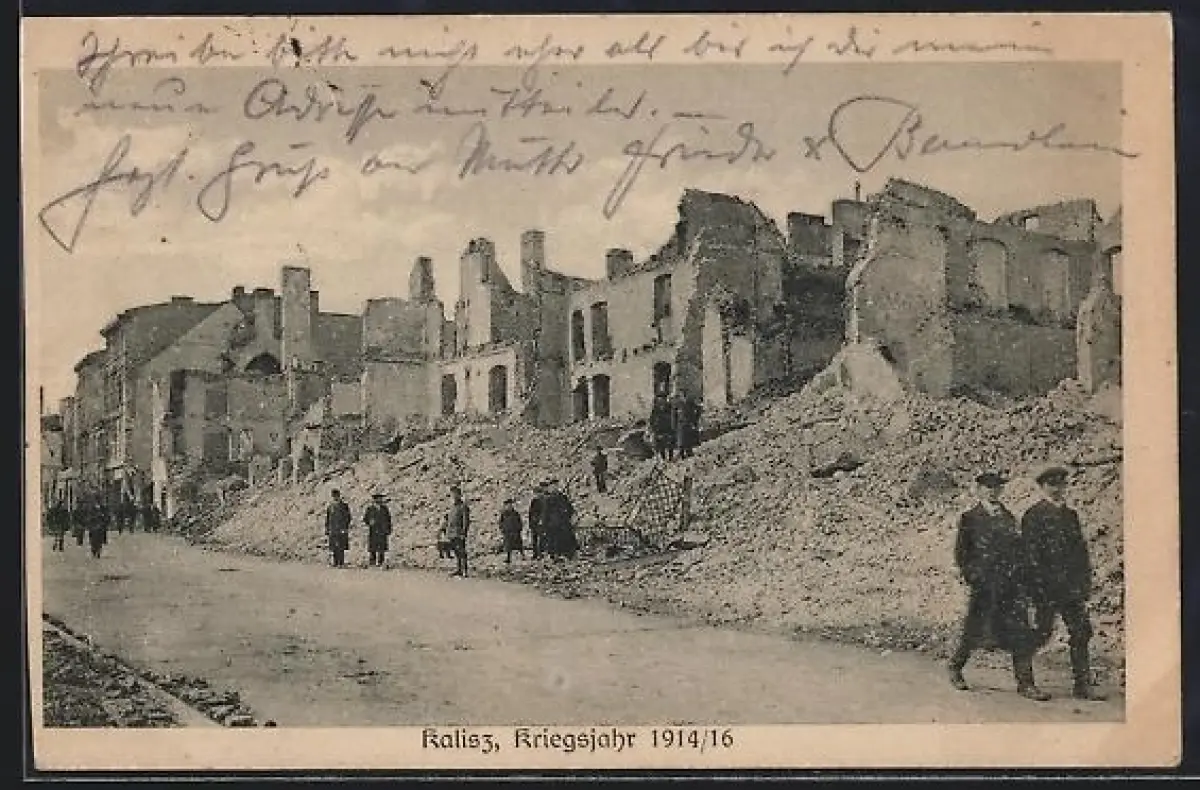 Schreibe bitte nicht eher als bis ich dir meine
neue Adresse mitteile. —
Hrzl. Gruß an Mutter Friede &
Kalisz, Kriegsjahr 1914/16